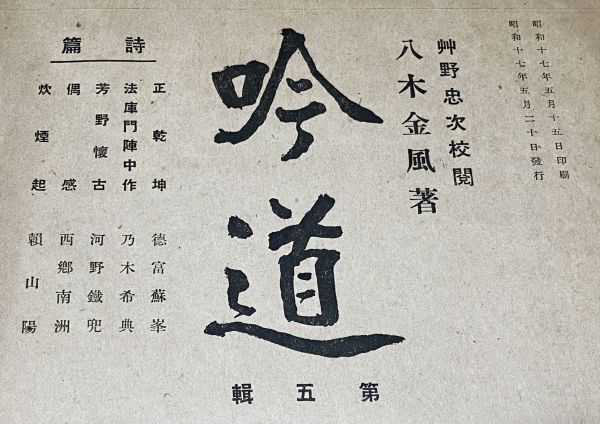 昭和十七年五月十五日印刷
昭和十七年五月二十日發行
艸野忠次校閲
八木金風著
吟道
第五輯
詩篇
正乾坤 德富蘇峯
法庫門陣中作 乃木希典
芳野懷古 河野鐵兜
偶感 西鄕南洲
炊煙起 賴山陽